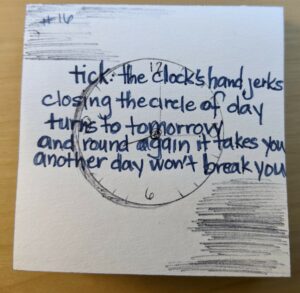 #16
12
tick: the clock's hand jerks
closing the circle of day
turns to tomorrow
and round again it takes you
another day won't break you
6